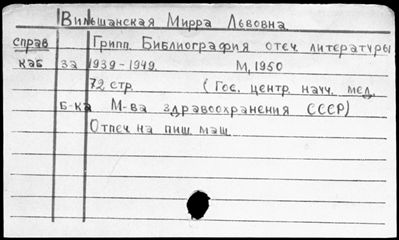 Вильшанская Мирра Львовна
справ Грипп. Библиография отеч. литературы
каб за 1939-1949. М, 1950
72 стр. (Гос. центр. научн. мед.
Б-ка М-ва здравоохранения СССР)
Отпеч на пиш. маш